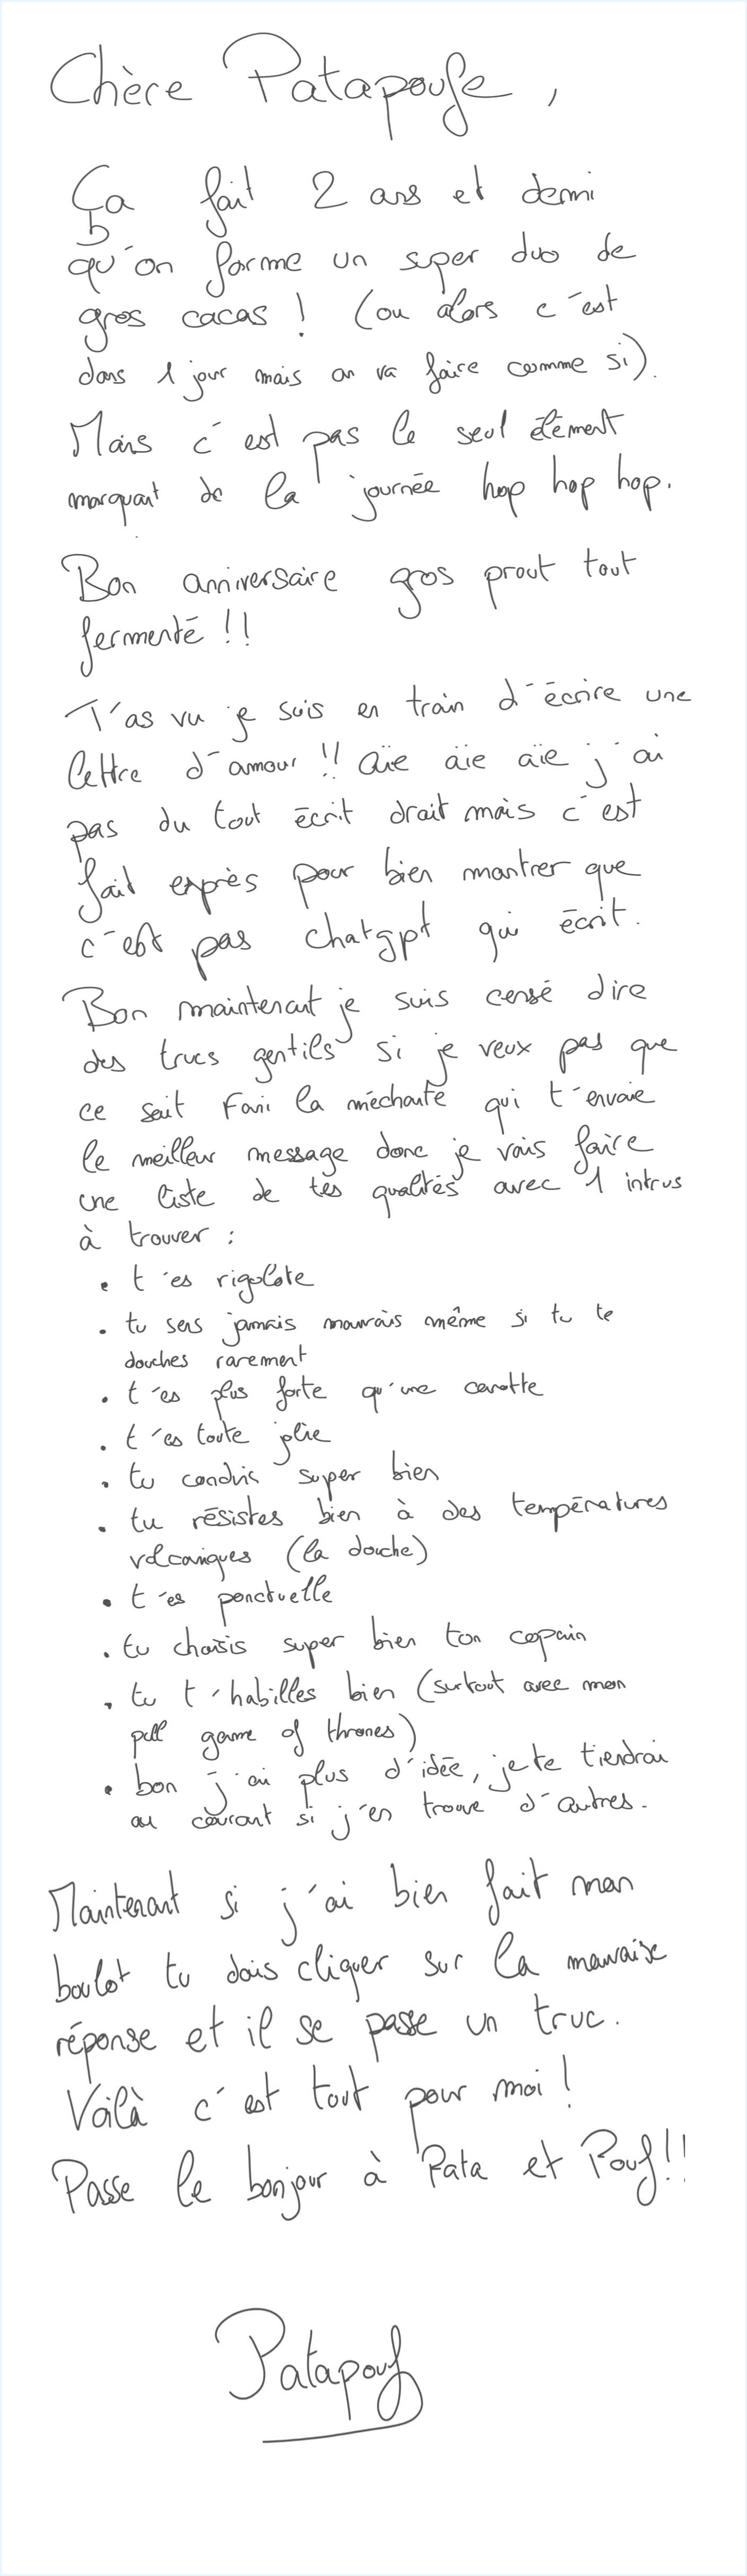 Chère Patapoufe,
Ça fait 2 ans et demi
qu'on forme un super duo de
gros cacas ! (ou alors c'est
dans 1 jour mais on va faire comme si).
Mais c'est pas le seul élément
marquant de la journée hop hop hop.
Bon anniversaire gros prout tout
fermenté !!
T'as vu je suis en train d'écrire une
lettre d'amour !! aïe aïe aïe j'ai
pas du tout écrit droit mais c'est
fait exprès pour bien montrer que
c'est pas chatgpt qui écrit.
Bon maintenant je suis censé dire
des trucs gentils si je veux pas que
ce soit Fani la méchante qui t'envoie
le meilleur message donc je vais faire
une liste de tes qualités avec 1 intrus
à trouver :
• t'es rigolote
• tu sens jamais mauvais même si tu te
douches rarement
• t'es plus forte qu'une carotte
• t'es toute jolie
• tu conduis super bien
• tu résistes bien à des températures
volcaniques (la douche)
• t'es ponctuelle
• tu choisis super bien ton copain
• tu t'habilles bien (surtout avec mon
pull game of thrones)
• bon j'ai plus d'idée, je te tiendrai
au courant si j'en trouve d'autres.
Maintenant si j'ai bien fait mon
boulot tu dois cliquer sur la mauvaise
réponse et il se passe un truc.
Voilà c'est tout pour moi !
Passe le bonjour à Pata et Pouf !!
Patapouf